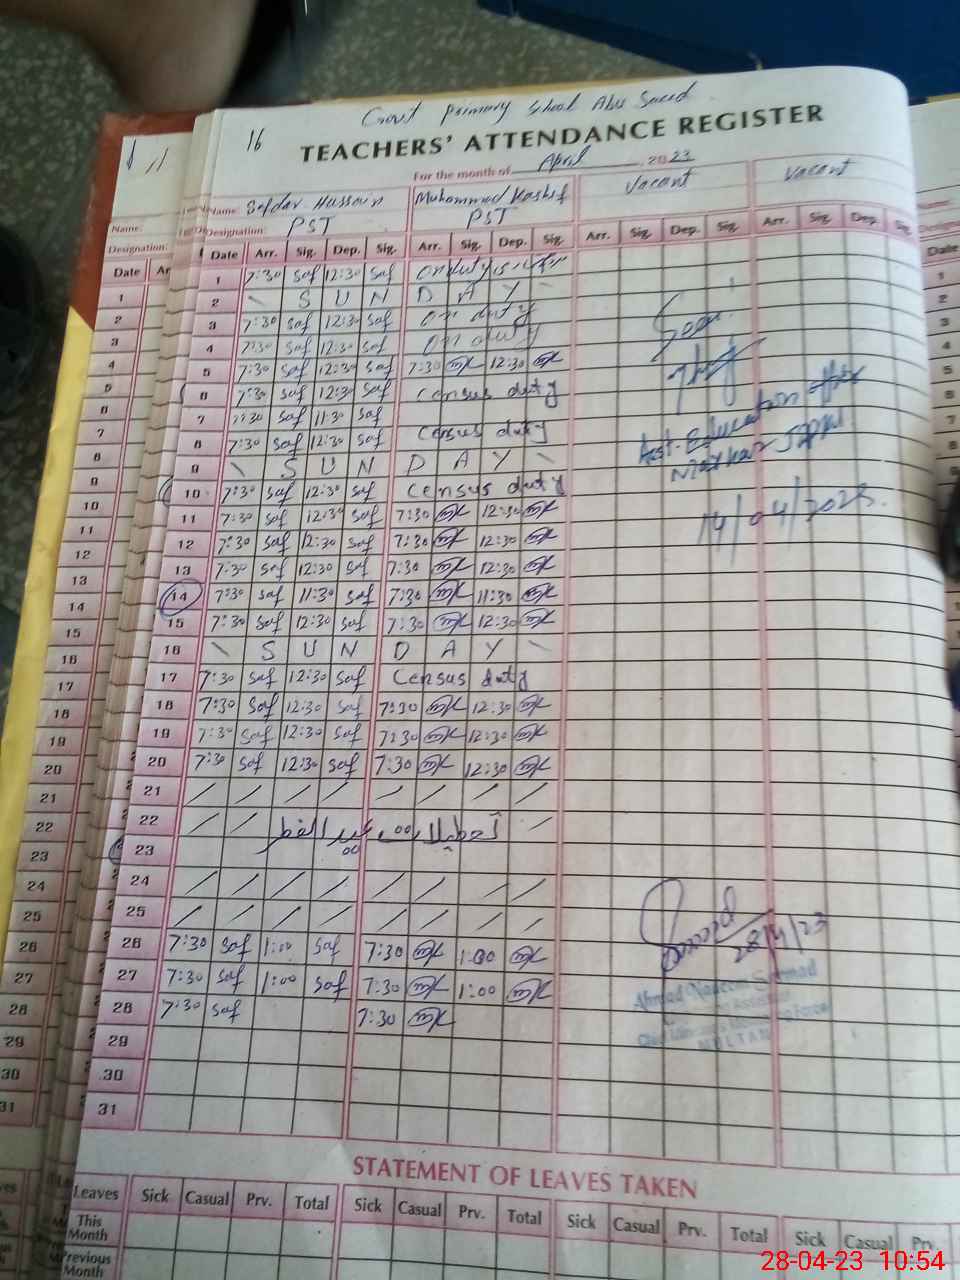 16
Govt Primary School Abu Saeed
TEACHERS' ATTENDANCE REGISTER
For the month of April, 2023
Name: Safdar Hussain Muhammad Kashif Vacant Vacant
Designation: PST PST
Date Arr. Sig. Dep. Sig. Arr. Sig. Dep. Sig Arr. Sig. Dep. Sig. Arr. Sig. Dep. Sig.
1 7:30 Saf 12:30 Saf On duty
2 \ S U N D A Y \
3 7:30 Saf 12:30 Saf On duty
4 7:30 Saf 12:30 Saf On duty
5 7:30 Saf 12:30 Saf 7:30 MK 12:30 MK
6 7:30 Saf 12:30 Saf Census duty
7 7:30 Saf 11:30 Saf
8 7:30 Saf 12:30 Saf Census duty
9 \ S U N D A Y \
10 7:30 Saf 12:30 Saf Census duty
11 7:30 Saf 12:30 Saf 7:30 MK 12:30 MK
12 7:30 Saf 12:30 Saf 7:30 MK 12:30 MK
13 7:30 Saf 12:30 Saf 7:30 MK 12:30 MK
14 7:30 Saf 11:30 Saf 7:30 MK 11:30 MK
15 7:30 Saf 12:30 Saf 7:30 MK 12:30 MK
16 \ S U N D A Y \
17 7:30 Saf 12:30 Saf Census duty
18 7:30 Saf 12:30 Saf 7:30 MK 12:30 MK
19 7:30 Saf 12:30 Saf 7:30 MK 12:30 MK
20 7:30 Saf 12:30 Saf 7:30 MK 12:30 MK
21 / / / / / / / /
22 / / /
23
24 / / / / / / / /
25 / / / / / / / /
26 7:30 Saf 1:00 Saf 7:30 MK 1:00 MK
27 7:30 Saf 1:00 Saf 7:30 MK 1:00 MK
28 7:30 Saf 7:30 MK
29
30
31
Seen
Asst. Education officer
14/04/2023.
28/4/23
Ahmad Naeem Sarmad
MULTAN
STATEMENT OF LEAVES TAKEN
Leaves Sick Casual Prv. Total Sick Casual Prv. Total Sick Casual Prv. Total Sick Casual Prv.
This Month
Previous Month
Name:
Designation:
Date
1
2
3
4
5
6
7
8
9
10
11
12
13
14
15
16
17
18
19
20
21
22
23
24
25
26
27
28
29
30
31
28-04-23 10:54